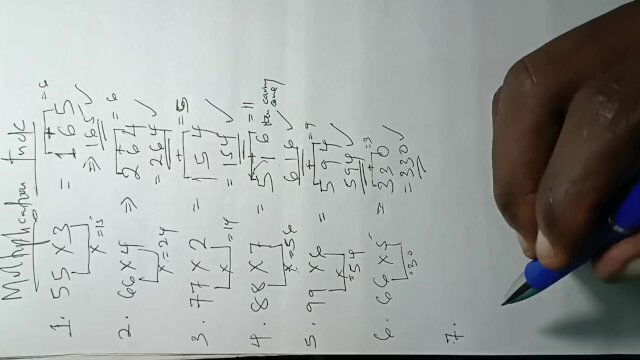 Multiplication Trick
1. 55 x 3 = 165 = 6
x = 15 ⇒ 165 ✓
2. 66 x 4 ⇒ 264 = 6
x = 24 = 264 ✓
3. 77 x 2 = 154 = 5
x = 14 = 154 ✓
4. 88 x 7 = 516 = 11 then carry one
x = 56 616 ✓
5. 99 x 6 = 594 = 9
x = 54 594 ✓
6. 66 x 5 = 330 = 3
= 30 = 330 ✓
7.